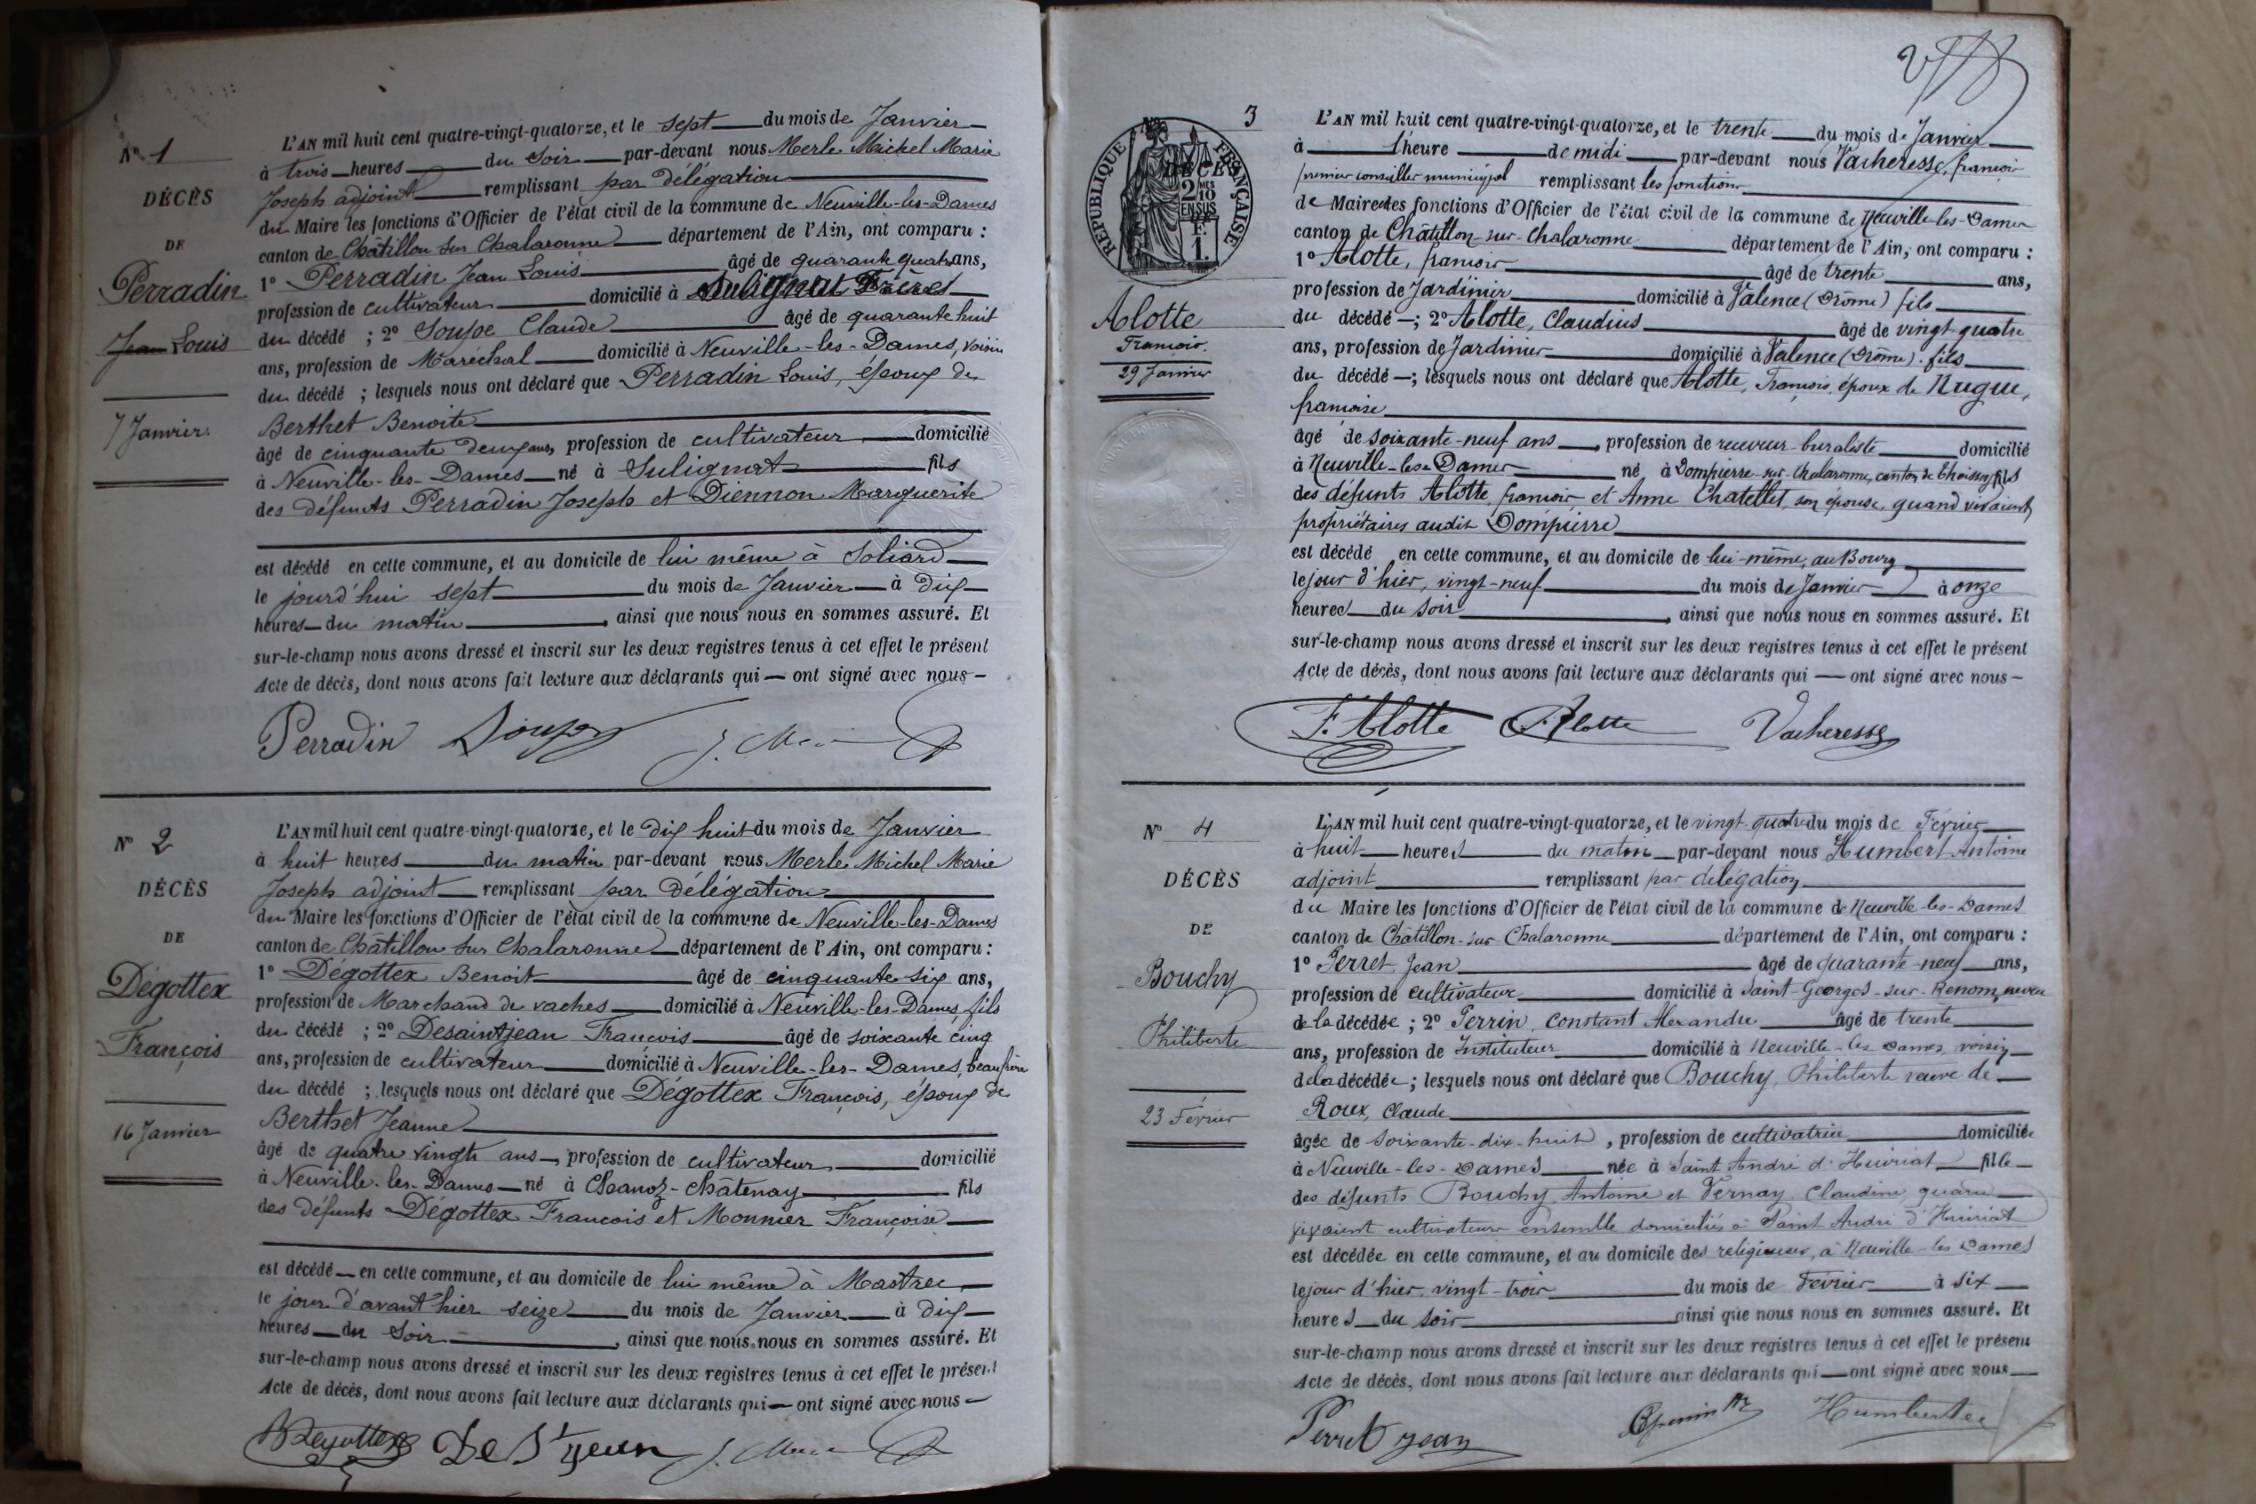 N° 1
DÉCÈS
DE
Perradin
Jean Louis
7 Janvier
L'AN mil huit cent quatre-vingt-quatorze, et le sept du mois de Janvier
à trois heures du soir par-devant nous Merle Michel Marie
Joseph adjoint remplissant par délégation
du Maire les fonctions d'Officier de l'état civil de la commune de Neuville-les-Dames
canton de Châtillon sur Chalaronne département de l'Ain, ont comparu :
1° Perradin Jean Louis âgé de quarante quatre ans,
profession de cultivateur domicilié à Sulignat Frère
du décédé ; 2° Soupe Claude âgé de quarante huit
ans, profession de Maréchal domicilié à Neuville-les-Dames, voisin
du décédé ; lesquels nous ont déclaré que Perradin Louis, époux de
Berthet Benoite
âgé de cinquante deux ans, profession de cultivateur domicilié
à Neuville-les-Dames né à Sulignat fils
des défunts Perradin Joseph et Diennon Marguerite
est décédé en cette commune, et au domicile de lui même à Soliard
le jourd'hui sept du mois de Janvier à dix
heures du matin, ainsi que nous nous en sommes assuré. Et
sur-le-champ nous avons dressé et inscrit sur les deux registres tenus à cet effet le présent
Acte de décès, dont nous avons fait lecture aux déclarants qui ont signé avec nous
Perradin Soupe J. Merle
N° 2
DÉCÈS
DE
Dégottex
François
16 Janvier
L'AN mil huit cent quatre-vingt-quatorze, et le dix huit du mois de Janvier
à huit heures du matin par-devant nous Merle Michel Marie
Joseph adjoint remplissant par délégation
du Maire les fonctions d'Officier de l'état civil de la commune de Neuville-les-Dames
canton de Châtillon sur Chalaronne département de l'Ain, ont comparu :
1° Dégottex Benoit âgé de cinquante six ans,
profession de Marchand de vaches domicilié à Neuville-les-Dames, fils
du décédé ; 2° Desaintjean François âgé de soixante cinq
ans, profession de cultivateur domicilié à Neuville-les-Dames, beau frère
du décédé ; lesquels nous ont déclaré que Dégottex François, époux de
Berthet Jeanne
âgé de quatre vingts ans, profession de cultivateur domicilié
à Neuville-les-Dames né à Chanoz-Châtenay fils
des défunts Dégottex François et Monnier Françoise
est décédé en cette commune, et au domicile de lui même à Mastrec
le jour d'avant hier seize du mois de Janvier à dix
heures du soir, ainsi que nous nous en sommes assuré. Et
sur-le-champ nous avons dressé et inscrit sur les deux registres tenus à cet effet le présent
Acte de décès, dont nous avons fait lecture aux déclarants qui ont signé avec nous
BDegottex De St jean J. Merle
2
3
RÉPUBLIQUE FRANÇAISE
DÉCÈS
2 MES 10
EN SUS
F.
1.
Alotte
François
29 Janvier
L'AN mil huit cent quatre-vingt-quatorze, et le trente du mois de Janvier
à l'heure de midi par-devant nous Vacheresse, françois
premier conseiller municipal remplissant les fonctions
de Maire des fonctions d'Officier de l'état civil de la commune de Neuville-les-Dames
canton de Châtillon-sur-Chalaronne département de l'Ain, ont comparu :
1° Alotte, françois âgé de trente ans,
profession de Jardinier domicilié à Valence (Drôme) fils
du décédé ; 2° Alotte, Claudius âgé de vingt-quatre
ans, profession de Jardinier domicilié à Valence (Drôme). fils
du décédé ; lesquels nous ont déclaré que Alotte, François, époux de Nugue,
françoise
âgé de soixante-neuf ans, profession de receveur-buraliste domicilié
à Neuville-les-Dames né à Dompierre-sur-Chalaronne, canton de Thoissey, fils
des défunts Alotte, françois et Anne Chatellet, son épouse, quand vivaient
propriétaires audit Dompierre
est décédé en cette commune, et au domicile de lui-même, au Bourg
le jour d'hier, vingt-neuf du mois de Janvier à onze
heures du soir, ainsi que nous nous en sommes assuré. Et
sur-le-champ nous avons dressé et inscrit sur les deux registres tenus à cet effet le présent
Acte de décès, dont nous avons fait lecture aux déclarants qui ont signé avec nous
F. Alotte C. Alotte Vacheresse
N° 4
DÉCÈS
DE
Bouchy
Philiberte
23 Février
L'AN mil huit cent quatre-vingt-quatorze, et le vingt-quatre du mois de Février
à huit heures du matin par-devant nous Humbert Antoine
adjoint remplissant par délégation
du Maire les fonctions d'Officier de l'état civil de la commune de Neuville-les-Dames
canton de Châtillon-sur-Chalaronne département de l'Ain, ont comparu :
1° Perret, Jean âgé de quarante-neuf ans,
profession de cultivateur domicilié à Saint-Georges-sur-Renom, neveu
de la décédée ; 2° Perrin, Constant Alexandre âgé de trente
ans, profession de Instituteur domicilié à Neuville-les-Dames voisin
de la décédée ; lesquels nous ont déclaré que Bouchy, Philiberte veuve de
Roux, Claude
âgée de soixante-dix-huit, profession de cultivatrice domiciliée
à Neuville-les-Dames née à Saint André d'Huiriat fille
des défunts Bouchy, Antoine et Vernay, Claudine, quand
vivaient cultivateurs ensemble domiciliés à Saint André d'Huiriat
est décédée en cette commune, et au domicile des religieuses, à Neuville-les-Dames
le jour d'hier vingt-trois du mois de Février à six
heures du soir ainsi que nous nous en sommes assuré. Et
sur-le-champ nous avons dressé et inscrit sur les deux registres tenus à cet effet le présent
Acte de décès, dont nous avons fait lecture aux déclarants qui ont signé avec nous
Perret Jean CPerrin Humbert